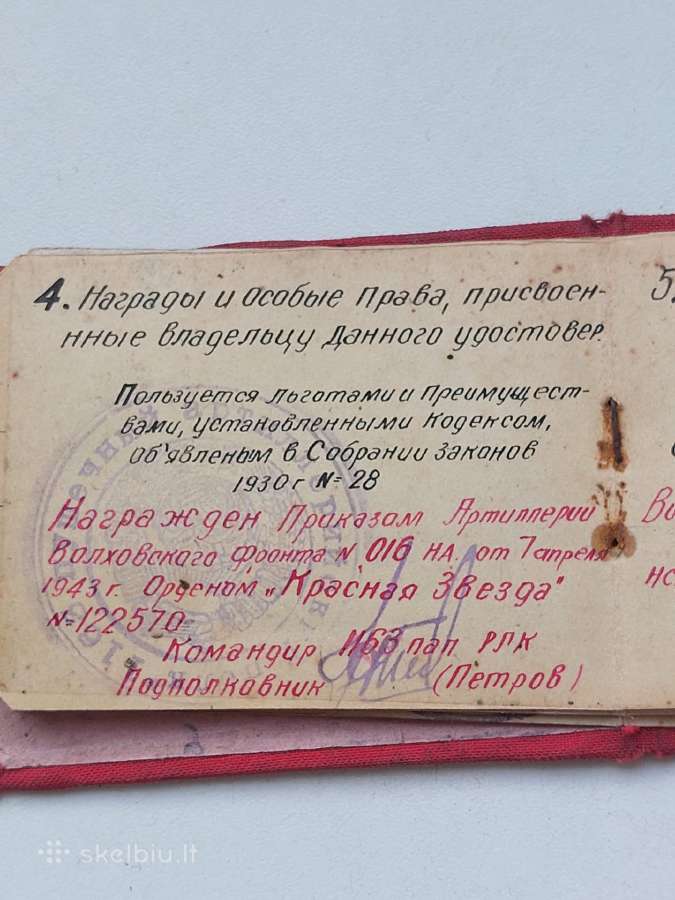 4. Награды и Особые Права, присвоен-
нные владельцу Данного удостовер.
Пользуется льготами и Преимущест-
вами, установленными Кодексом,
об'явленым в Собрании законов
1930 г №=28
Награжден Приказом Артиллерии
Волховского фронта N 016 НА, от 7 апреля
1943 г. Орденом „Красная Звезда"
N=122570
Командир 1163 пап РГК
Подполковник (Петров)
5.
skelbiu.lt